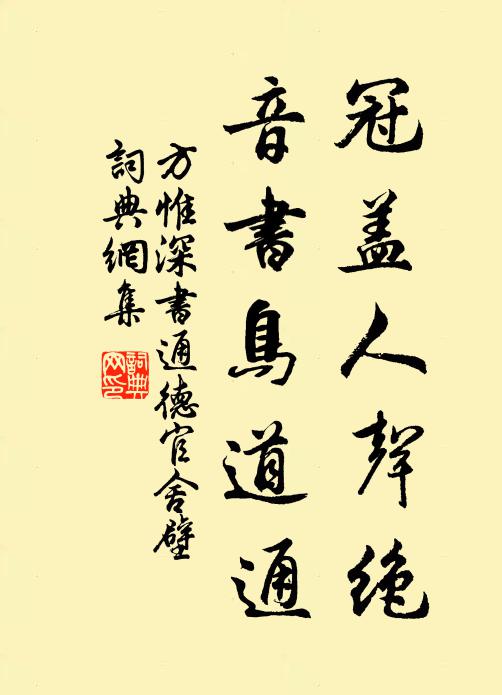 冠盖人聲絶
音書鳥道通
方惟深書通德官舍壁
詞典網集
詞典
网印